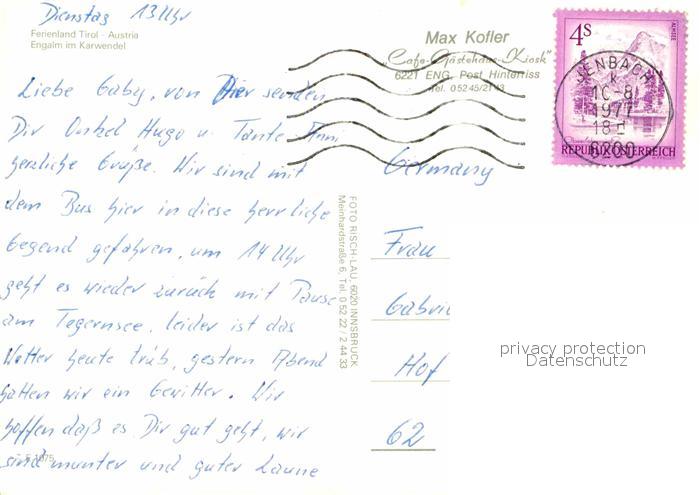 Dienstag 13 Uhr
Ferienland Tirol - Austria
Engalm im Karwendel
Max Kofler
„Cafe-Gästehaus-Kiosk“
6221 ENG, Post Hinterriss
Tel. 0 52 45/21143
4S
ALMSEE
JENBACH
k
10-8
1977
18
6200
REPUBLIK ÖSTERREICH
Liebe Gaby, von hier senden
Dir Onkel Hugo u. Tante Anni
herzliche Grüße. Wir sind mit
dem Bus hier in diese herrliche
Gegend gefahren, um 14 Uhr
geht es wieder zurück mit Pause
am Tegernsee, leider ist das
Wetter heute trüb, gestern Abend
hatten wir ein Gewitter. Wir
hoffen daß es Dir gut geht, wir
sind munter und guter Laune
E 1075
FOTO RISCH-LAU, 6020 INNSBRUCK
Meinhardstraße 6, Tel. 0 52 22 / 2 44 33
Germany
Frau
Gabri
Hof
62
privacy protection
Datenschutz